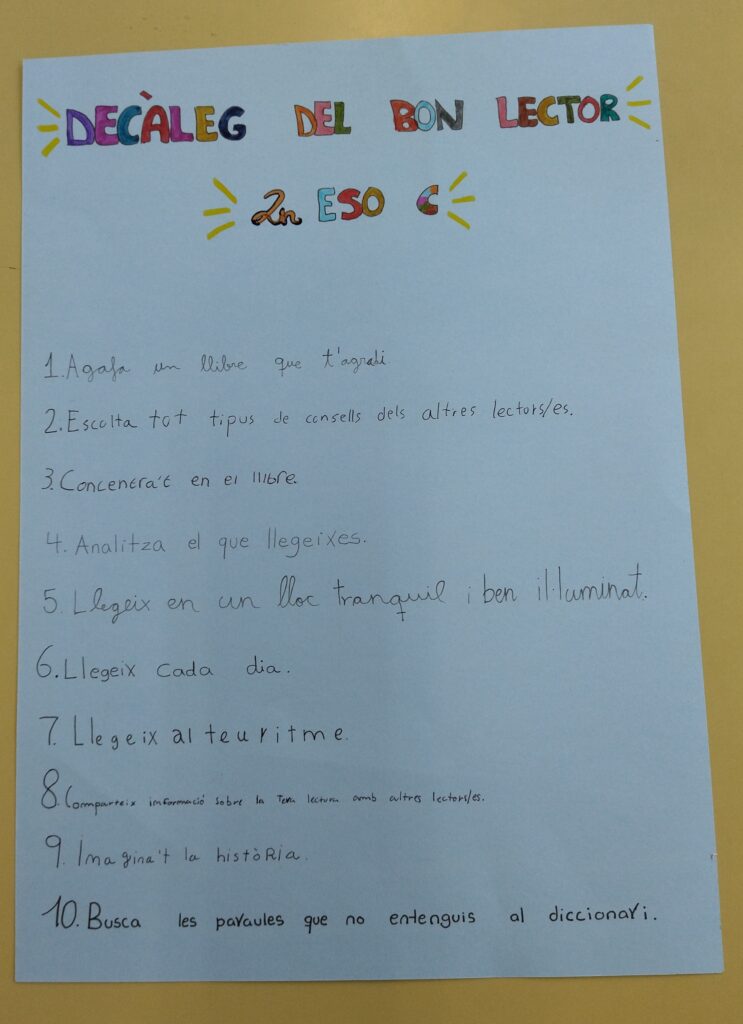 DECÀLEG DEL BON LECTOR
2n ESO C
1. Agafa un llibre que t'agradi.
2. Escolta tot tipus de consells dels altres lectors/es.
3. Concentra't en el llibre.
4. Analitza el que llegeixes.
5. Llegeix en un lloc tranquil i ben il·luminat.
6. Llegeix cada dia.
7. Llegeix al teu ritme.
8. Comparteix informació sobre la teva lectura amb altres lectors/es.
9. Imagina't la història.
10. Busca les paraules que no entenguis al diccionari.